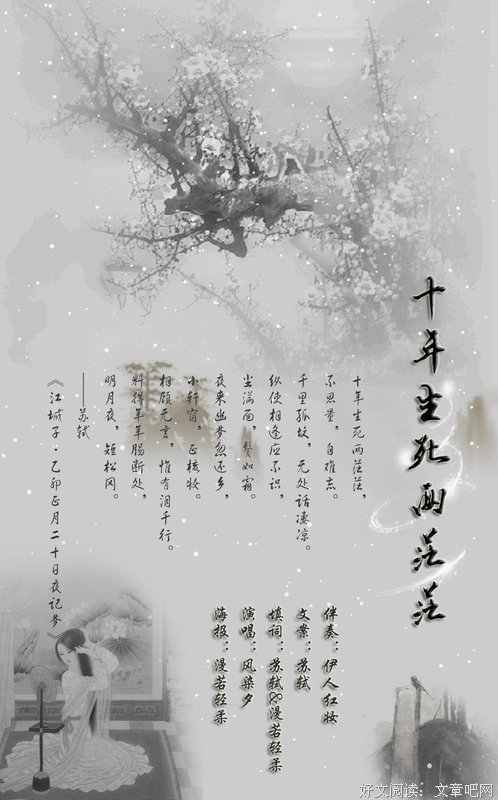 十年生死两茫茫
十年生死两茫茫，
不思量，自难忘。
千里孤坟，无处话凄凉。
纵使相逢应不识，
尘满面，鬓如霜。
夜来幽梦忽还乡，
小轩窗，正梳妆。
相顾无言，惟有泪千行。
料得年年肠断处，
明月夜，短松冈。
——苏轼
《江城子·乙卯正月二十日夜记梦》
伴奏：伊人红妆
文案：苏轼
填词：苏轼&漫若轻柔
演唱：风染夕
海报：漫若轻柔
好文阅读：文章吧网